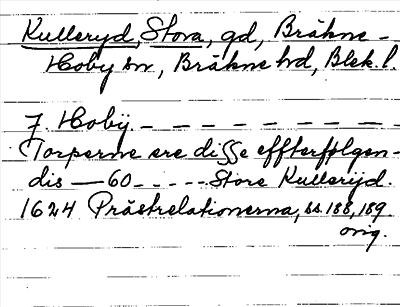 Kulleryd, Stora, gd, Bräkne-
Hoby sn, Bräkne hd, Blek. l.
7. Hobÿ. — — — — — — — —
Torperne ere disse effterfølgen-
dis — 60 - - - - - Store Kullerÿd.
1624 Prästrelationerna, ss. 188, 189
orig.